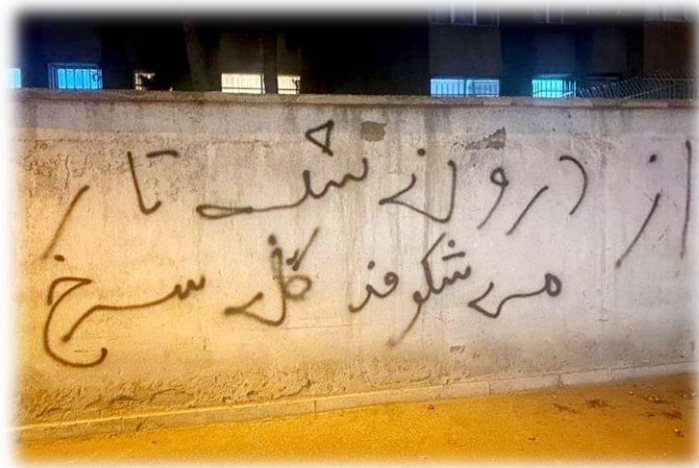 از درون شب تار
می شکوفد گل سرخ